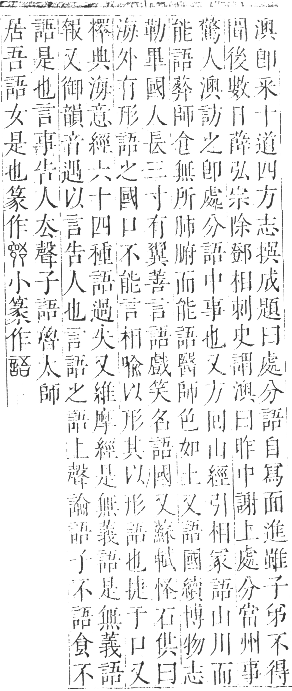 澳卽采十道四方志撰成題曰處分語自寫而進雖子弟不得
聞後數日薛弘宗除鄧相刺史謂澳曰昨中謝上處分當州事
驚人澳訪之卽處分語中事也又方回山經引相冢語山川而
能語葬師食無所肺腑而能語醫師色如土又語國續博物志
勒畢國人長三寸有翼善言語戲笑名語國又蘇軾怪石供曰
海外有形語之國口不能言相喻以形其以形語也捷于口又
釋典海意經六十四種語過失又維摩經是無義語是無義語
報又御韻音遇以言告人也言語之語上聲論語子不語食不
語是也言事告人厺聲子語魯太師
居吾語女是也篆作小篆作